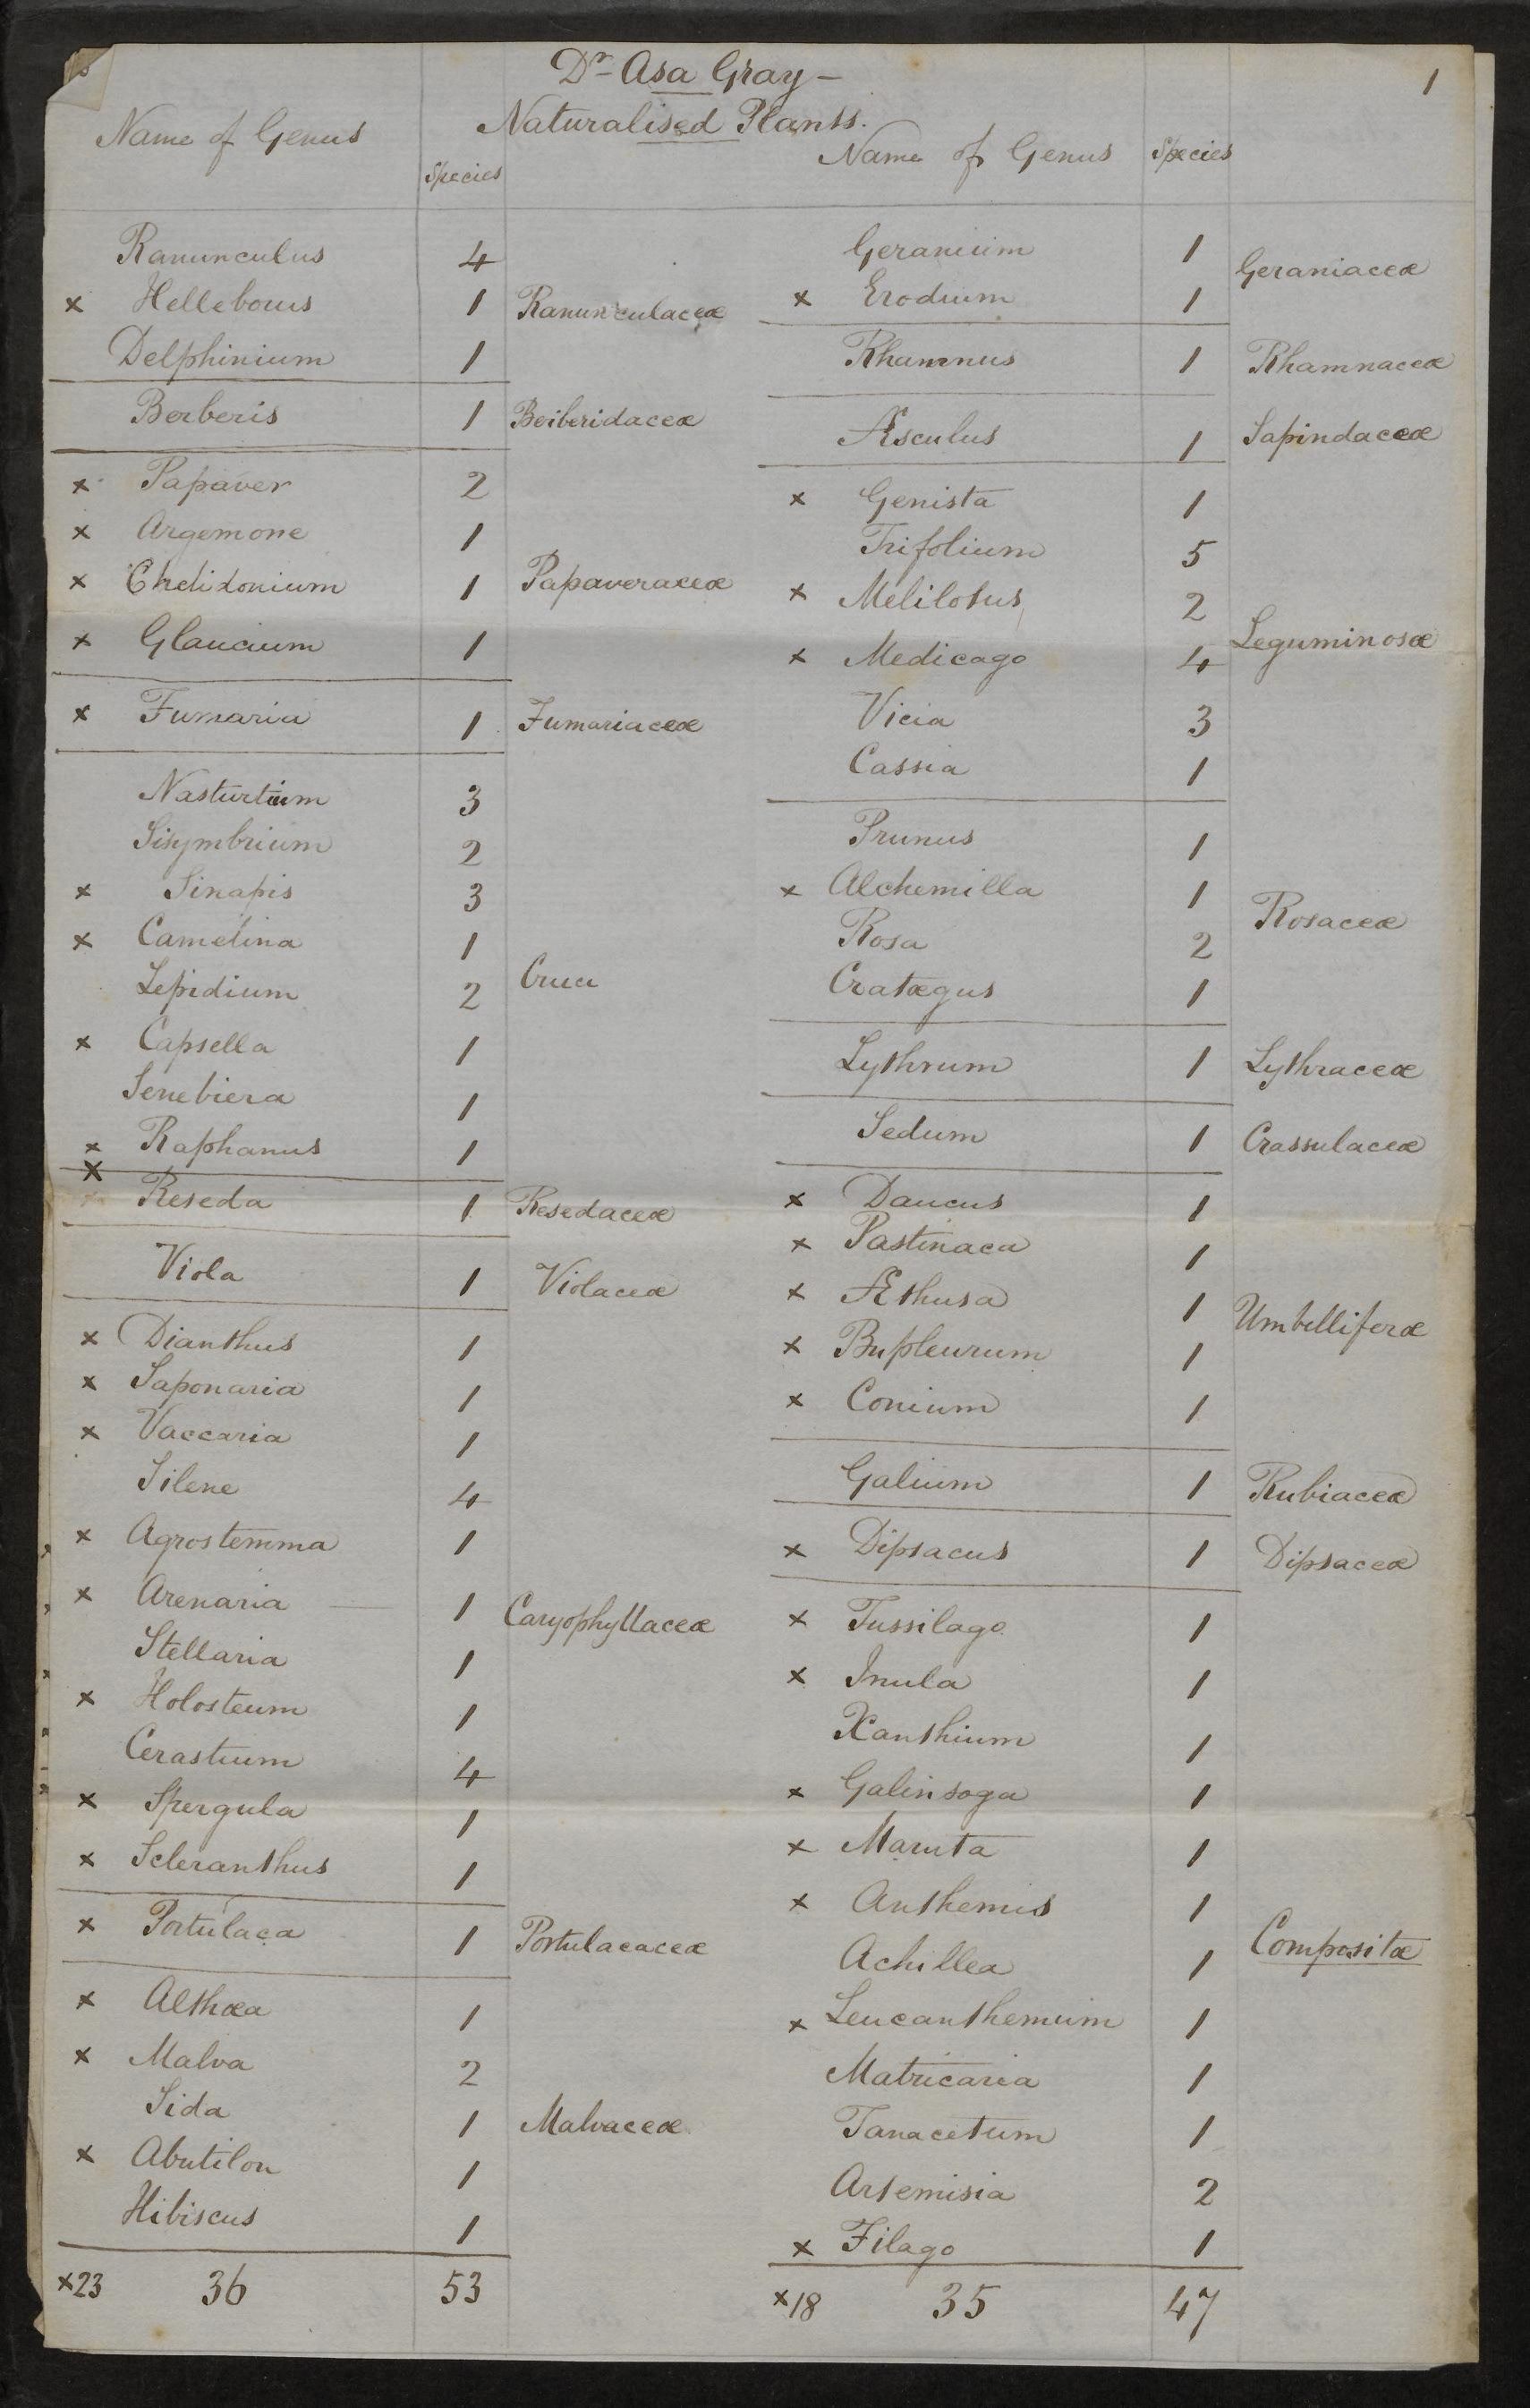 Dr Asa Gray —
1
Naturalised Plants.
Name of Genus
Species
Ranunculus 4
x Helleborus 1 Ranunculaceæ
Delphinium 1
Berberis 1 Berberidaceæ
x Papaver 2
x Argemone 1
x Chelidonium 1 Papaveraceæ
x Glaucium 1
x Fumaria 1 Fumariaceæ
Nasturtium 3
Sisymbrium 2
x Sinapis 3
x Camelina 1
Lepidium 2 Cruci
x Capsella 1
Senebiera 1
x Raphanus 1
x Reseda 1 Resedaceæ
Viola 1 Violaceæ
x Dianthus 1
x Saponaria 1
x Vaccaria 1
Silene 4
x Agrostemma 1
x Arenaria — 1 Caryophyllaceæ
Stellaria 1
x Holosteum 1
Cerastium 4
x Spergula 1
x Scleranthus 1
x Portulaca 1 Portulacaceæ
x Althæa 1
x Malva 2
Sida 1 Malvaceæ
x Abutilon 1
Hibiscus 1
x23 36 53
Name of Genus Species
Geranium 1 Geraniaceæ
x Erodium 1
Rhamnus 1 Rhamnaceæ
Æsculus 1 Sapindaceæ
x Genista 1
Trifolium 5
x Melilotus 2
Leguminosæ
x Medicago 4
Vicia 3
Cassia 1
Prunus 1
x Alchemilla 1
Rosaceæ
Rosa 2
Cratægus 1
Lythrum 1 Lythraceæ
Sedum 1 Crassulaceæ
x Daucus 1
x Pastinaca 1
x Æthusa 1 Umbelliferæ
x Bupleurum 1
x Conium 1
Galium 1 Rubiaceæ
x Dipsacus 1 Dipsaceæ
x Tussilago 1
x Inula 1
Xanthium 1
x Galinsoga 1
x Maruta 1
x Anthemis 1
Compositæ
Achillea 1
x Leucanthemum 1
Matricaria 1
Tanacetum 1
Artemisia 2
x Filago 1
x18 35 47